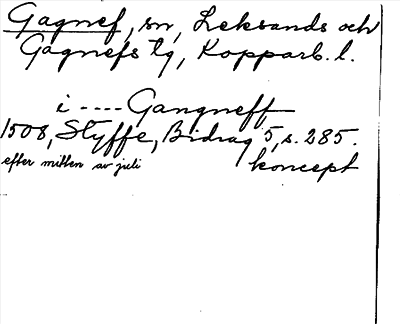 Gagnef, sn, Leksands och
Gagnefs tg, Kopparb. l.
i ---- Gangneff
1508, Styffe, Bidrag 5, s. 285.
efter mitten av juli koncept